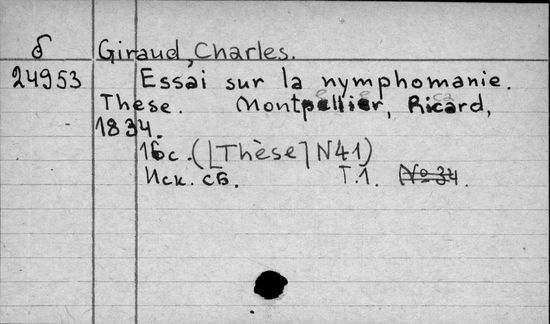 б Giraud, Charles.
24953 Essai sur la nymphomanie.
These. Montpellier, Ricard,
1834.
16с. ([Thèse] N41)
Иск. сб. Т.1. №34.